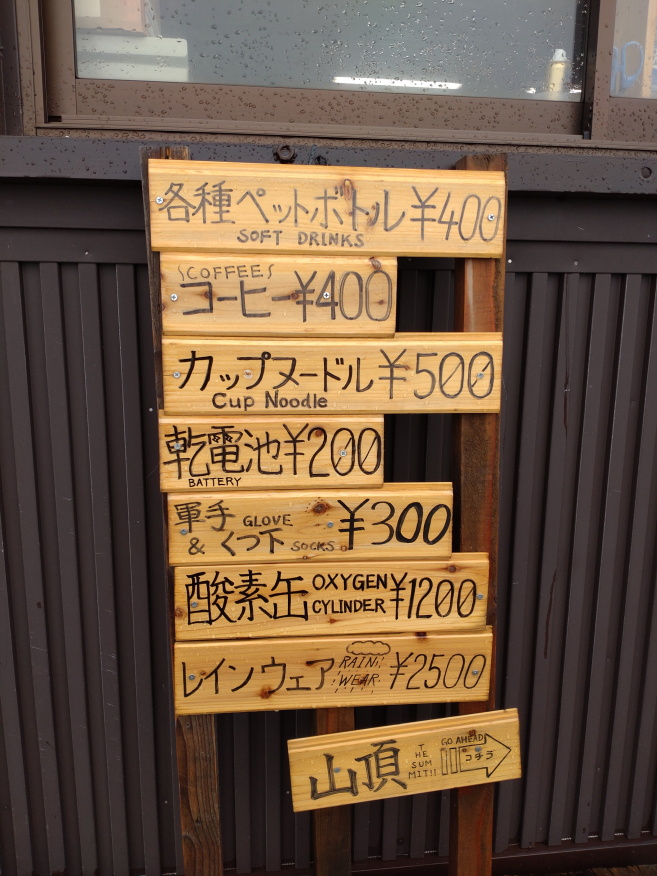 各種ペットボトル ¥400
SOFT DRINKS
COFFEE
コーヒー ¥400
カップヌードル ¥500
Cup Noodle
乾電池 ¥200
BATTERY
軍手 GLOVE ¥300
& くつ下 SOCKS
酸素缶 OXYGEN CYLINDER ¥1200
レインウェア RAIN WEAR ¥2500
山頂 THE SUMMIT!! GO AHEAD コチラ